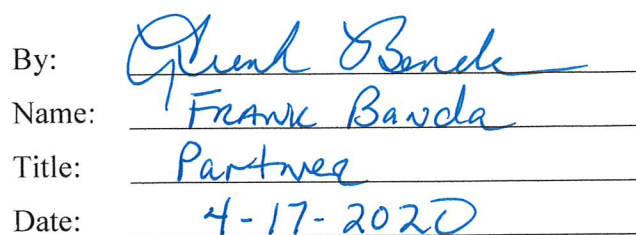 By: Frank Banda
Name: Frank Banda
Title: Partner
Date: 4-17-2020